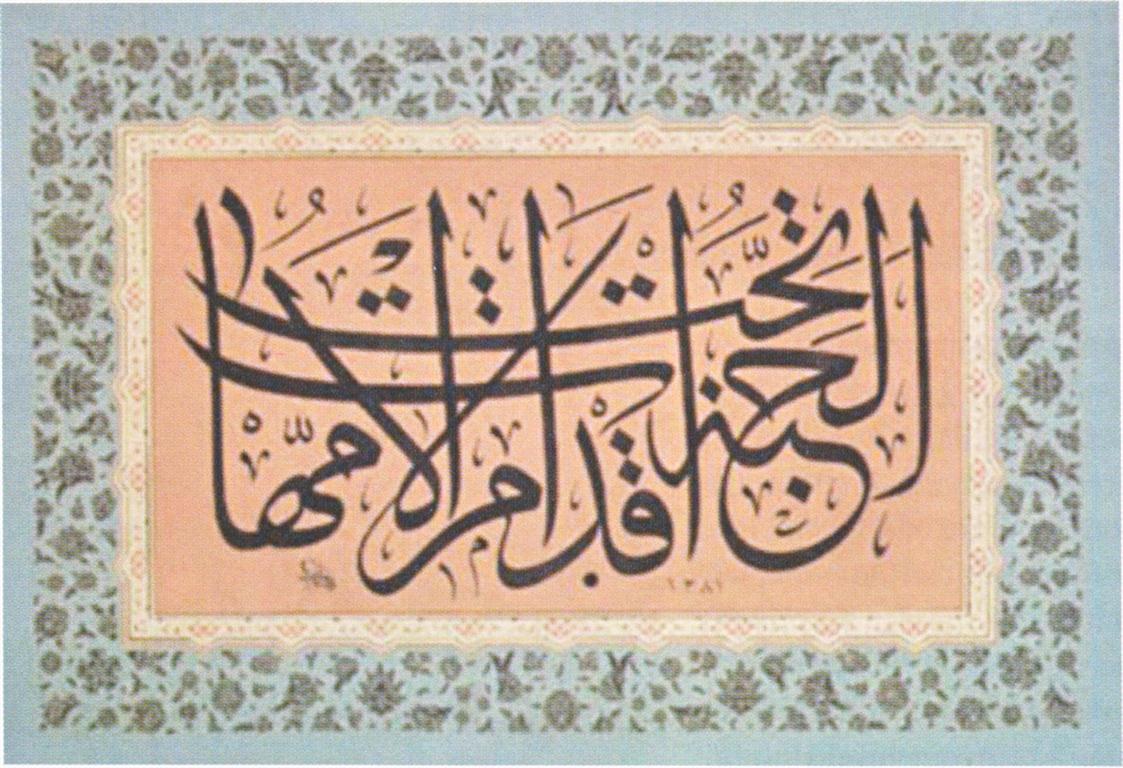 الجنة تحت اقدام الامهات
١٣٨١